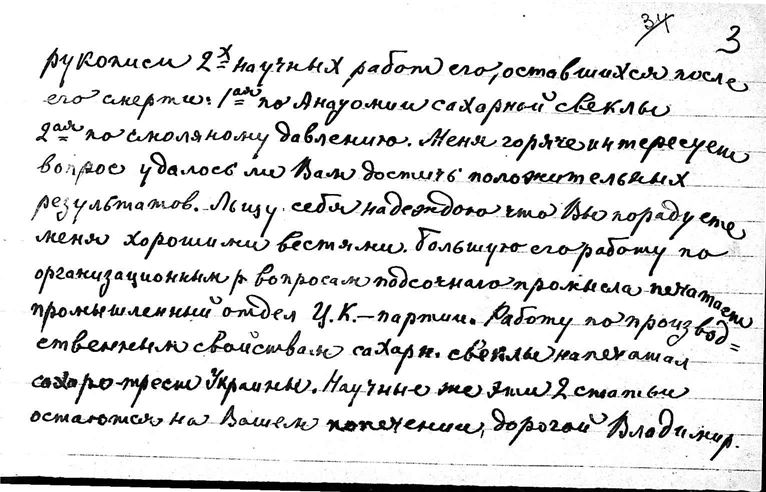 34 3
рукописи 2х научных работ его, оставшихся после
его смерти: 1ая по Анатомии сахарной свеклы
2ая по смоляному давлению. Меня горяче интересует
вопрос удалось ли Вам достичь положительных
результатов. Льщу себя надеждою что Вы порадуете
меня хорошими вестями. Большую его работу по
организационным вопросам подсочнаго промысла печатает
промышленный отдел Ц.К.–партии. Работу по производ=
ственным свойствам сахарн. свеклы напечатал
сахаро-трест Украины. Научные же эти 2 статьи
остаются на Вашем попечении, дорогой Владимир.